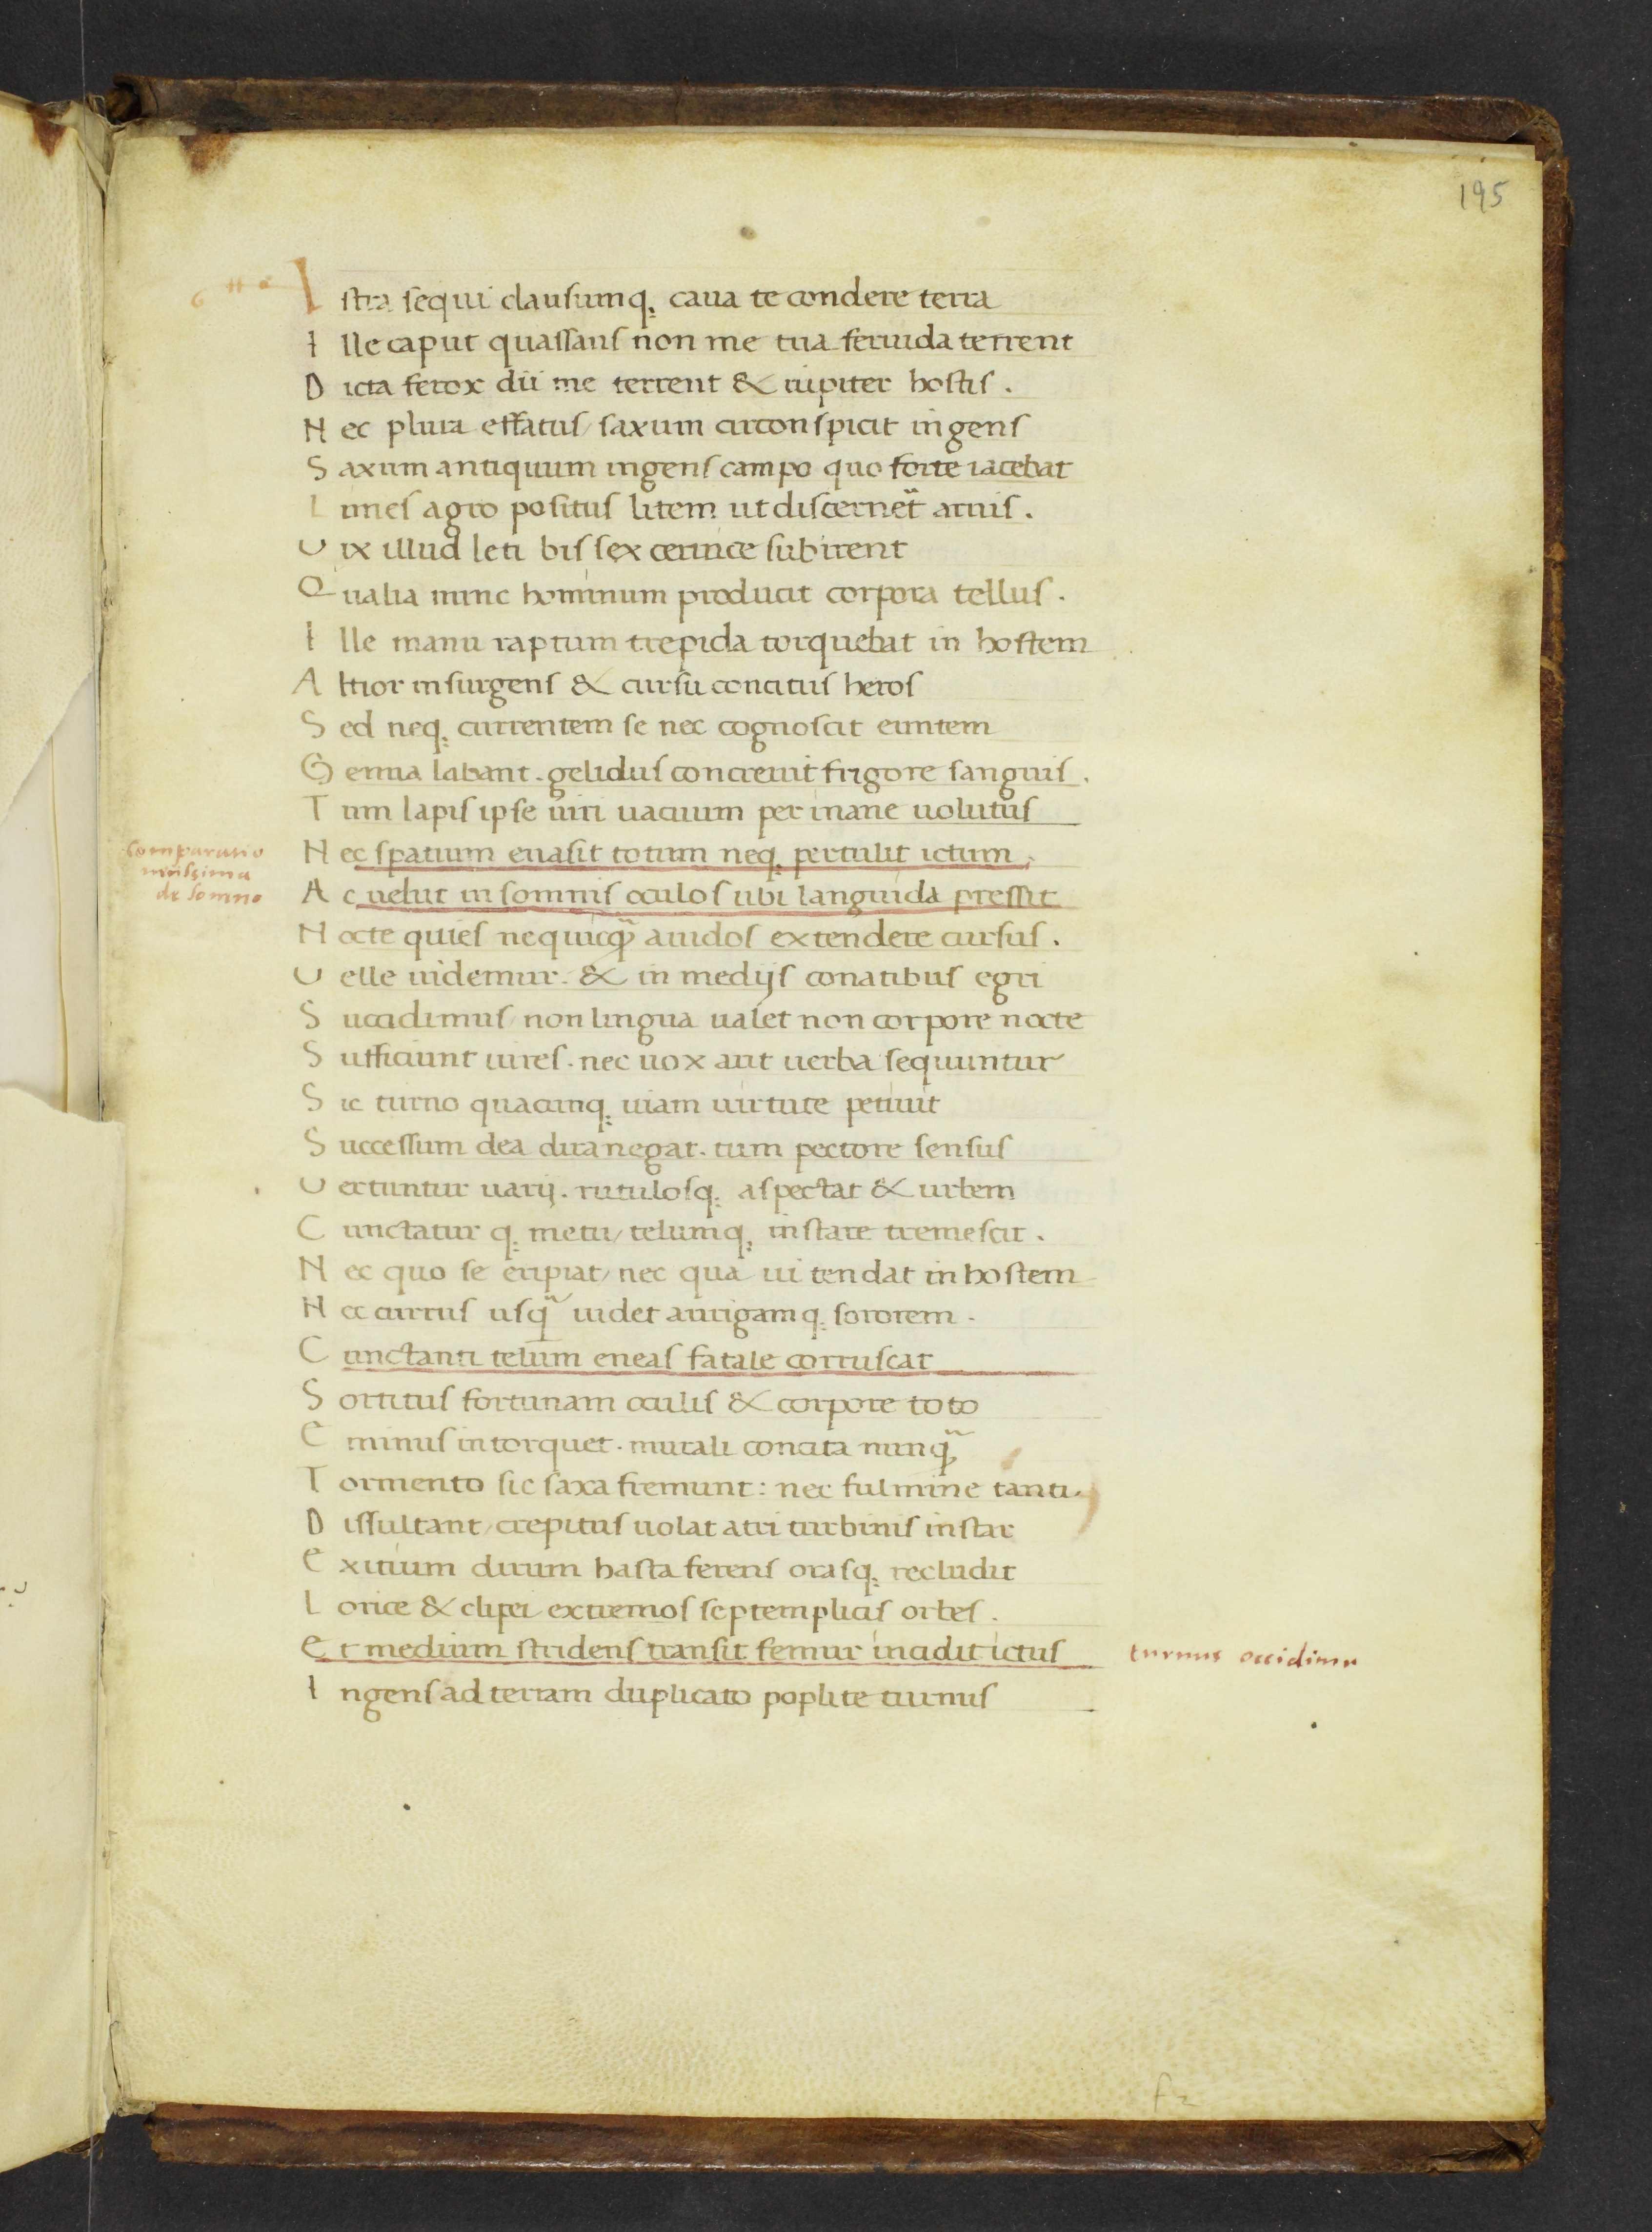 195
I stra sequi clausumq; caua te condere terra
I lle caput quassans non me tua feruida terrent
D icta ferox dii me terrent & iupiter hostis.
N ec plura effatus / saxum circonspicit ingens
S axum antiquum ingens campo quo forte iacebat
L imes agro positus litem ut discerneret aruis.
V ix illud leti bis sex ceruice subirent
Q ualia nunc hominum producit corpora tellus.
I lle manu raptum trepida torquebat in hostem
A ltior insurgens & cursu concitus heros
S ed neq; currentem se nec cognoscit euntem
G enua labant. gelidus concreuit frigore sanguis.
T um lapis ipse uiri uacuum per inane uolutus
comparatio
de somno
N ec spatium euasit totum neq; pertulit ictum.
A c uelut in somnis oculos ubi languida pressit
N octe quies nequicq̃ auidos extendere cursus.
V elle uidemur. & in medijs conatibus egri
S uccidimus / non lingua ualet non corpore nocte
S ufficiunt uires. nec uox aut uerba sequuntur
S ic turno quacunq; uiam uirtute petiuit
S uccessum dea dira negat. tum pectore sensus
V ertuntur uarij. rutulosq; aspectat & urbem
C unctatur q; metu / telumq; instare tremescit.
N ec quo se eripiat / nec qua ui tendat in hostem
N ec currus usq̃ uidet aurigamq; sororem.
C unctanti telum eneas fatale corruscat
S ortitus fortunam oculis & corpore toto
E minus intorquet. murali concita nunq̃
T ormento sic saxa fremunt: nec fulmine tanti.
D issultant / crepitus uolat atri turbinis instar
E xitium dirum hasta ferens orasq; recludit
L orice & clipei extremos septemplicis orbes.
E t medium stridens transit femur incidit ictus
turnus occiditur
I ngens ad terram duplicato poplite turnus